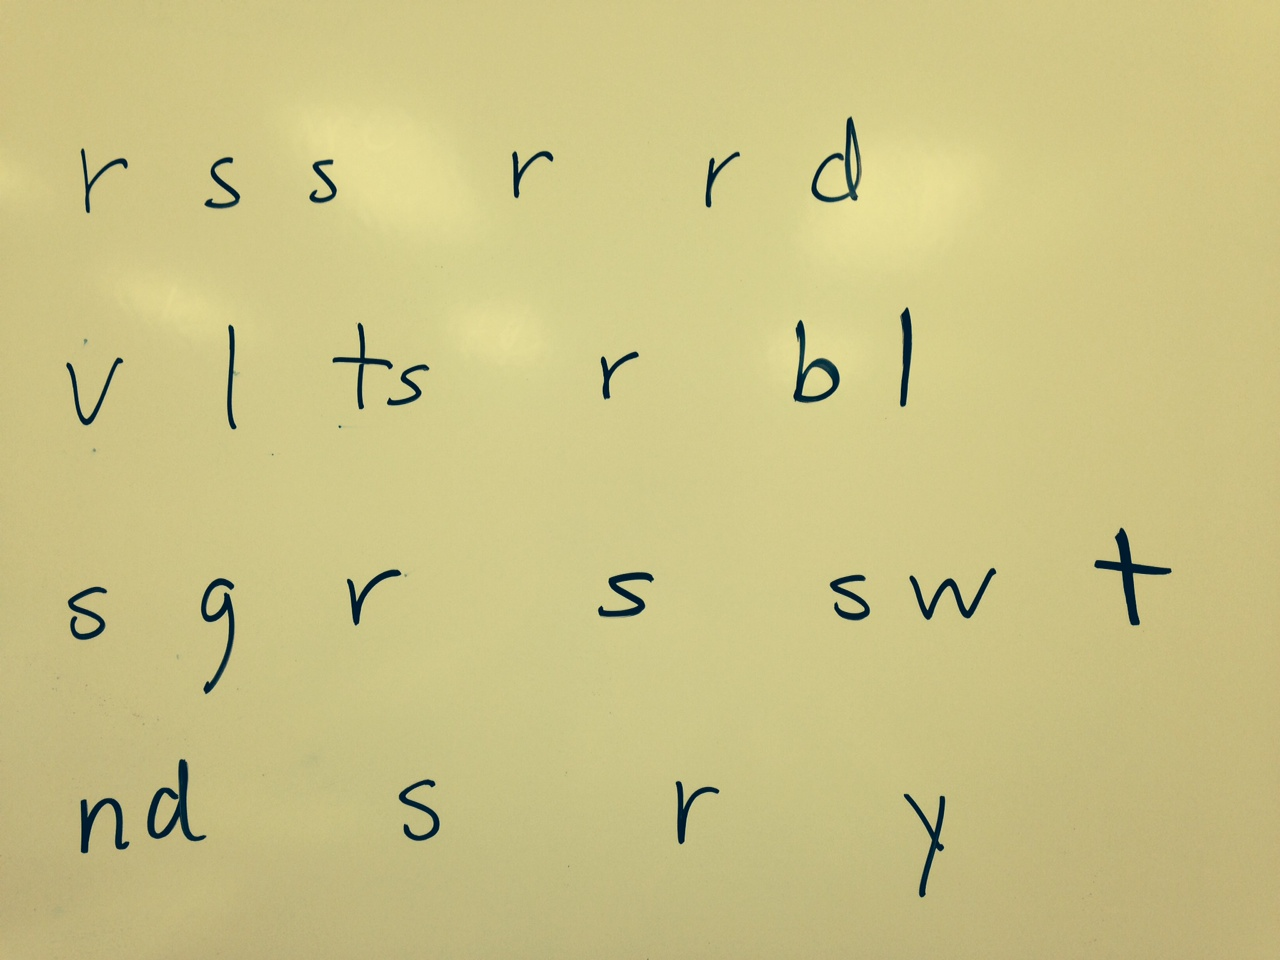 r s s r r d
v l ts r b l
s g r s s w t
nd s r y